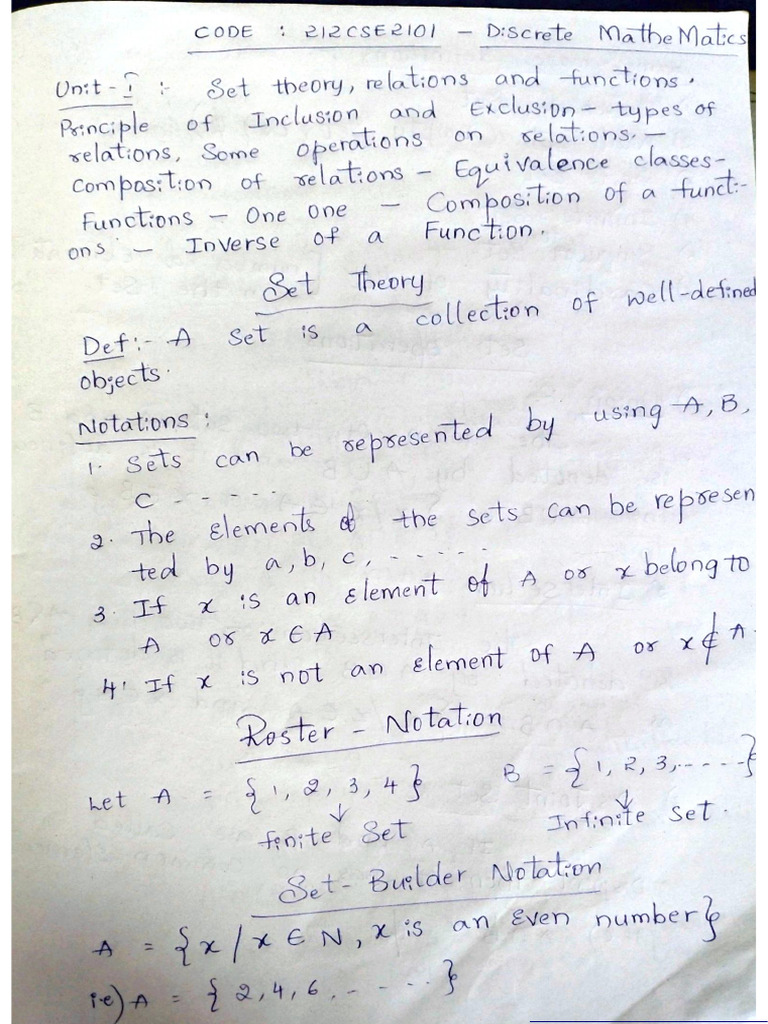 CODE : 212CSE2101 - Discrete MatheMatics
Unit - I :- Set theory, relations and functions.
Principle of Inclusion and Exclusion - types of
relations, Some operations on relations. -
Composition of relations - Equivalence classes-
Functions - One one - Composition of a functi-
ons - Inverse of a Function.
Set Theory
Def :- A set is a collection of well-defined
objects.
Notations :
1. Sets can be represented by using A, B,
C - - - - -
2. The Elements of the sets can be represen
ted by a, b, c, - - - - - -
3. If x is an Element of A or x belong to
A or x ∈ A
4. If x is not an Element of A or x ∉ A.
Roster - Notation
Let A = {1, 2, 3, 4} B = {1, 2, 3, - - - -}
↓ ↓
finite Set Infinite set.
Set - Builder Notation
A = {x / x ∈ N, x is an Even number}
i.e) A = {2, 4, 6, - - - - -}